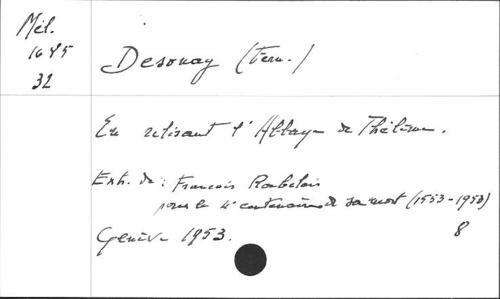 Mél.
1685
32
Desonay (Fern.)
En relisant l'Abbaye de Thélème.
Extr. de : François Rabelais
pour le 4e centenaire de sa mort (1553-1953)
Genève 1953.
8